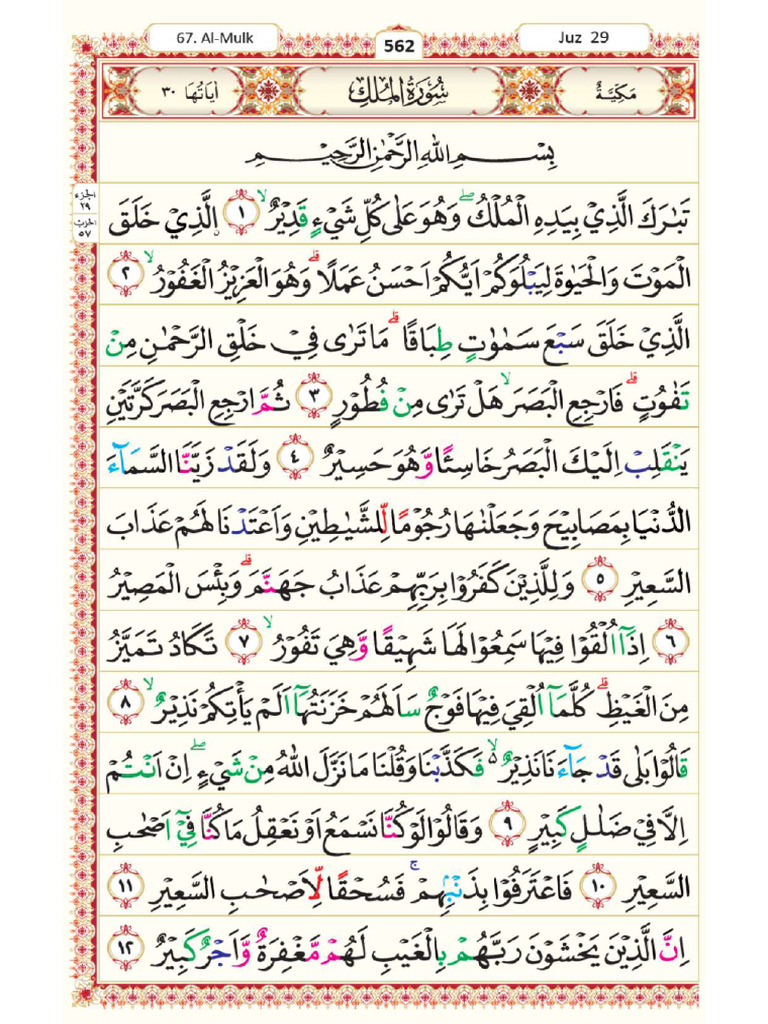 67. Al-Mulk
562
Juz 29
اٰيَاتُهَا ٣٠
سُوْرَةُ الْمُلْكِ
مَكِّيَّةٌ
بِسْمِ اللّٰهِ الرَّحْمٰنِ الرَّحِيْمِ
الجزء ٢٩
الحزب ٥٧
تَبٰرَكَ الَّذِيْ بِيَدِهِ الْمُلْكُ ۖ وَهُوَ عَلٰى كُلِّ شَيْءٍ قَدِيْرٌ ۙ ١ ۨالَّذِيْ خَلَقَ
الْمَوْتَ وَالْحَيٰوةَ لِيَبْلُوَكُمْ اَيُّكُمْ اَحْسَنُ عَمَلًا ۗ وَهُوَ الْعَزِيْزُ الْغَفُوْرُ ۙ ٢
الَّذِيْ خَلَقَ سَبْعَ سَمٰوٰتٍ طِبَاقًا ۗ مَا تَرٰى فِيْ خَلْقِ الرَّحْمٰنِ مِنْ
تَفٰوُتٍ ۗ فَارْجِعِ الْبَصَرَ ۙ هَلْ تَرٰى مِنْ فُطُوْرٍ ٣ ثُمَّ ارْجِعِ الْبَصَرَ كَرَّتَيْنِ
يَنْقَلِبْ اِلَيْكَ الْبَصَرُ خَاسِئًا وَّهُوَ حَسِيْرٌ ٤ وَلَقَدْ زَيَّنَّا السَّمَاۤءَ
الدُّنْيَا بِمَصَابِيْحَ وَجَعَلْنٰهَا رُجُوْمًا لِّلشَّيٰطِيْنِ وَاَعْتَدْنَا لَهُمْ عَذَابَ
السَّعِيْرِ ٥ وَلِلَّذِيْنَ كَفَرُوْا بِرَبِّهِمْ عَذَابُ جَهَنَّمَ ۗ وَبِئْسَ الْمَصِيْرُ
٦ اِذَآ اُلْقُوْا فِيْهَا سَمِعُوْا لَهَا شَهِيْقًا وَّهِيَ تَفُوْرُ ۙ ٧ تَكَادُ تَمَيَّزُ
مِنَ الْغَيْظِ ۗ كُلَّمَآ اُلْقِيَ فِيْهَا فَوْجٌ سَاَلَهُمْ خَزَنَتُهَآ اَلَمْ يَأْتِكُمْ نَذِيْرٌ ۙ ٨
قَالُوْا بَلٰى قَدْ جَاۤءَنَا نَذِيْرٌ ۙ فَكَذَّبْنَا وَقُلْنَا مَا نَزَّلَ اللّٰهُ مِنْ شَيْءٍ ۖ اِنْ اَنْتُمْ
اِلَّا فِيْ ضَلٰلٍ كَبِيْرٍ ٩ وَقَالُوْا لَوْ كُنَّا نَسْمَعُ اَوْ نَعْقِلُ مَا كُنَّا فِيْٓ اَصْحٰبِ
السَّعِيْرِ ١٠ فَاعْتَرَفُوْا بِذَنْبِهِمْ ۚ فَسُحْقًا لِّاَصْحٰبِ السَّعِيْرِ ١١
اِنَّ الَّذِيْنَ يَخْشَوْنَ رَبَّهُمْ بِالْغَيْبِ لَهُمْ مَّغْفِرَةٌ وَّاَجْرٌ كَبِيْرٌ ١٢